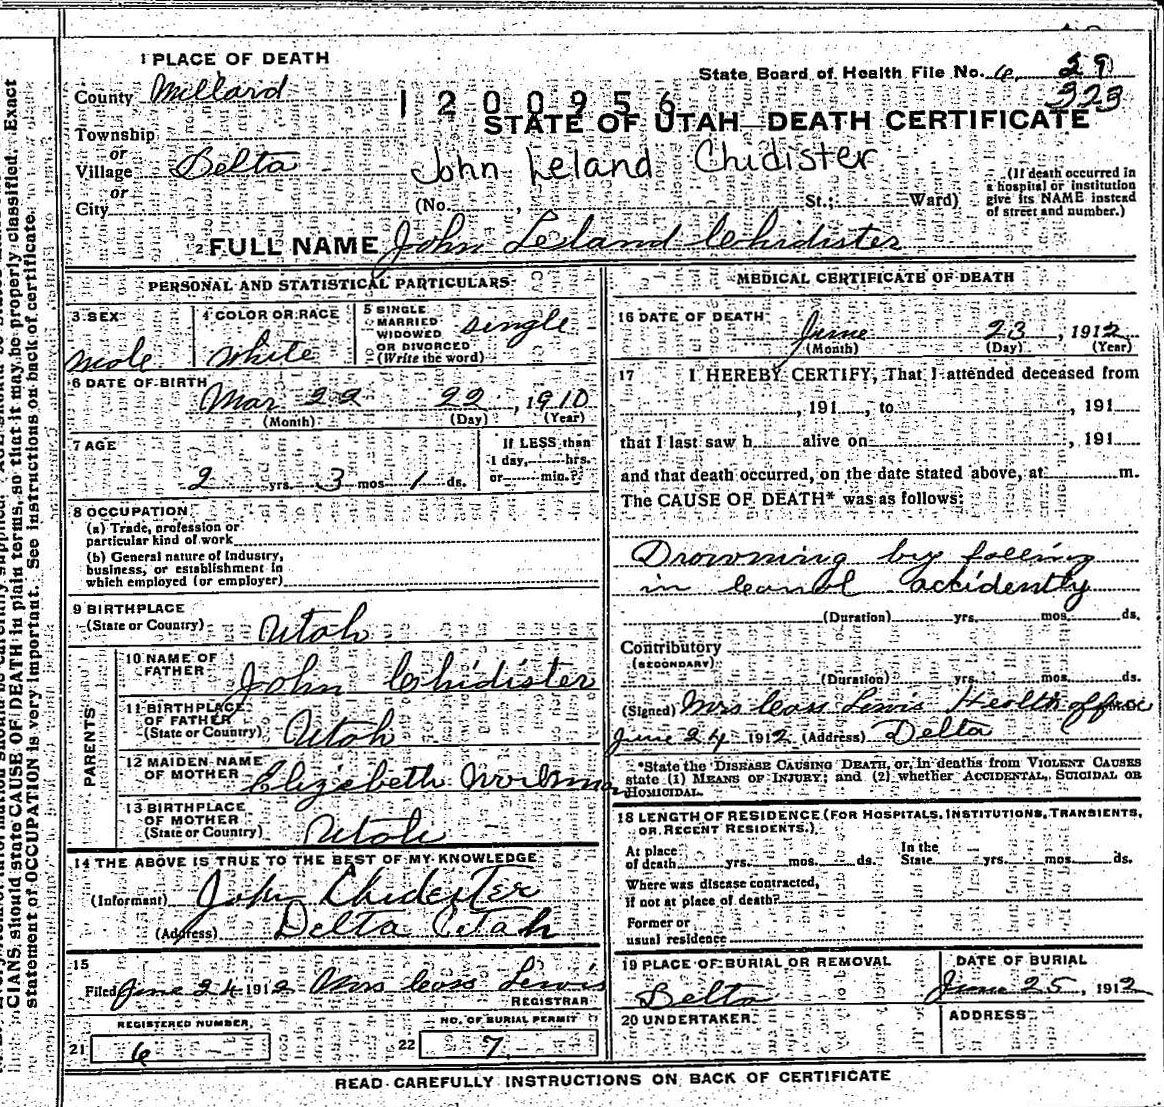 1 PLACE OF DEATH
State Board of Health File No. 6 29
323
County Millard
1200956
STATE OF UTAH—DEATH CERTIFICATE
Township
or
Village Delta
John Leland Chidister
or
City
(No. , St.; Ward)
(If death occurred in
a hospital or institution
give its NAME instead
of street and number.)
2 FULL NAME John Leland Chidister
PERSONAL AND STATISTICAL PARTICULARS
3 SEX
male
4 COLOR OR RACE
White
5 SINGLE
MARRIED
WIDOWED
OR DIVORCED
(Write the word)
single
6 DATE OF BIRTH
Mar 22 22, 1910
(Month) (Day) (Year)
7 AGE
2 yrs. 3 mos. 1 ds.
If LESS than
1 day, hrs.
or min.?
8 OCCUPATION
(a) Trade, profession or
particular kind of work
(b) General nature of Industry,
business, or establishment in
which employed (or employer)
9 BIRTHPLACE
(State or Country) Utah
PARENTS
10 NAME OF
FATHER John Chidister
11 BIRTHPLACE
OF FATHER
(State or Country) Utah
12 MAIDEN NAME
OF MOTHER Elizabeth Workman
13 BIRTHPLACE
OF MOTHER
(State or Country) Utah
14 THE ABOVE IS TRUE TO THE BEST OF MY KNOWLEDGE
(Informant) John Chidester
(Address) Delta Utah
15
Filed June 24 1912 Mrs Lewis
REGISTRAR
REGISTERED NUMBER,
21 6
NO. OF BURIAL PERMIT
22 7
MEDICAL CERTIFICATE OF DEATH
16 DATE OF DEATH
June 23, 1912
(Month) (Day) (Year)
17 I HEREBY CERTIFY, That I attended deceased from
, 191 , to , 191
that I last saw h alive on , 191
and that death occurred, on the date stated above, at m.
The CAUSE OF DEATH* was as follows:
Drowning by falling
in canal accidently
(Duration) yrs. mos. ds.
Contributory
(SECONDARY)
(Duration) yrs. mos. ds.
(Signed) Mrs Lewis Health officer
June 24 1912 (Address) Delta
*State the DISEASE CAUSING DEATH, or, in deaths from VIOLENT CAUSES
state (1) MEANS OF INJURY; and (2) whether ACCIDENTAL, SUICIDAL OR
HOMICIDAL.
18 LENGTH OF RESIDENCE (FOR HOSPITALS, INSTITUTIONS, TRANSIENTS,
OR RECENT RESIDENTS.)
At place
of death yrs. mos. ds.
In the
State yrs. mos. ds.
Where was disease contracted,
if not at place of death?
Former or
usual residence
19 PLACE OF BURIAL OR REMOVAL
Delta
DATE OF BURIAL
June 25, 1912
20 UNDERTAKER
ADDRESS
READ CAREFULLY INSTRUCTIONS ON BACK OF CERTIFICATE
CIANS should state CAUSE OF DEATH in plain terms, so that it may be properly classified. Exact
statement of OCCUPATION is very important. See instructions on back of certificate.